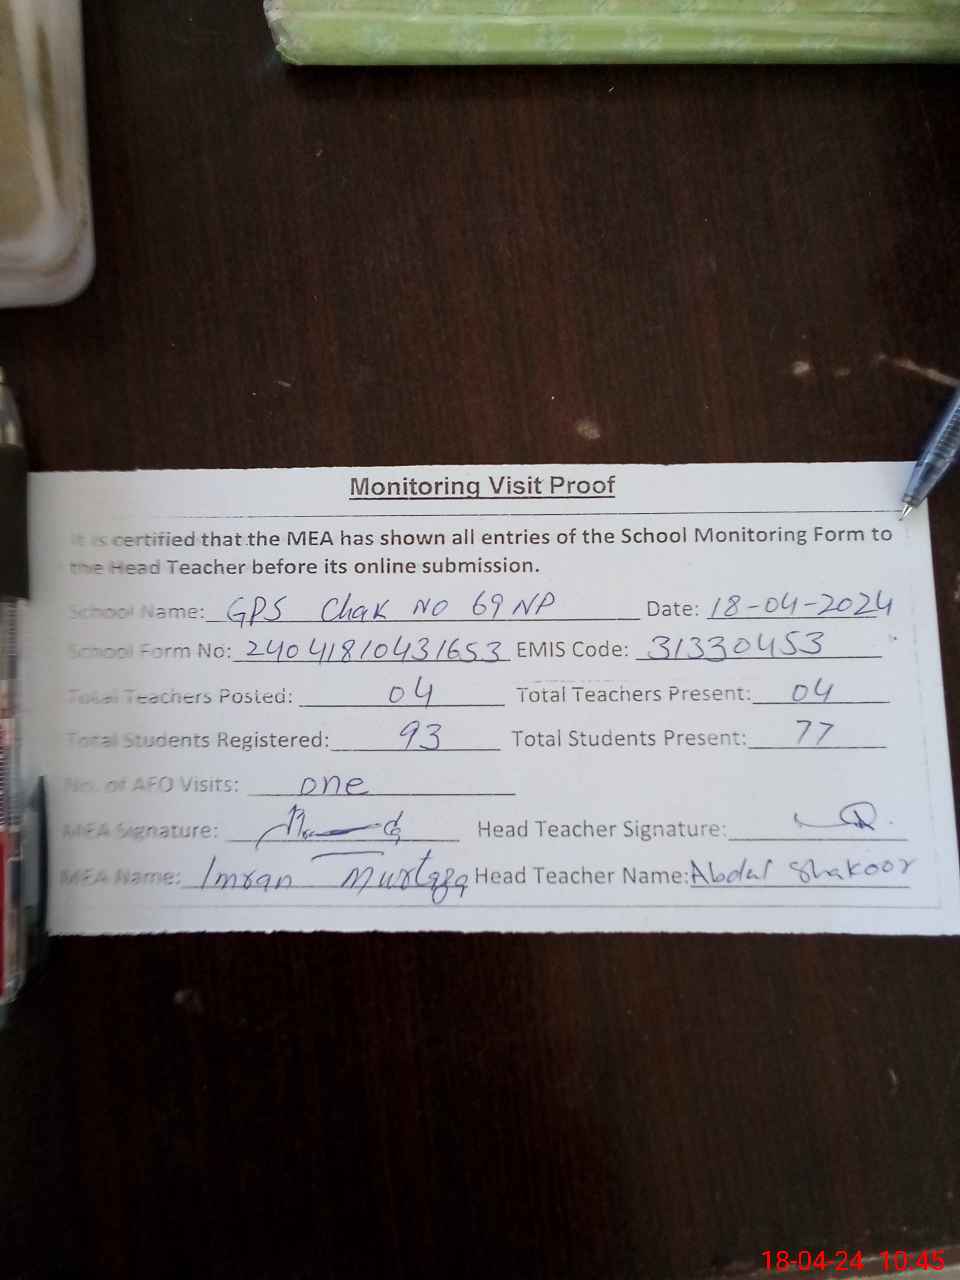 Monitoring Visit Proof
It is certified that the MEA has shown all entries of the School Monitoring Form to
the Head Teacher before its online submission.
School Name: GPS Chak NO 69 NP Date: 18-04-2024
School Form No: 24041810431653 EMIS Code: 31330453
Total Teachers Posted: 04 Total Teachers Present: 04
Total Students Registered: 93 Total Students Present: 77
No. of AEO Visits: one
MEA Signature: Head Teacher Signature:
MEA Name: Imran Murtaza Head Teacher Name: Abdul Shakoor
18-04-24 10:45